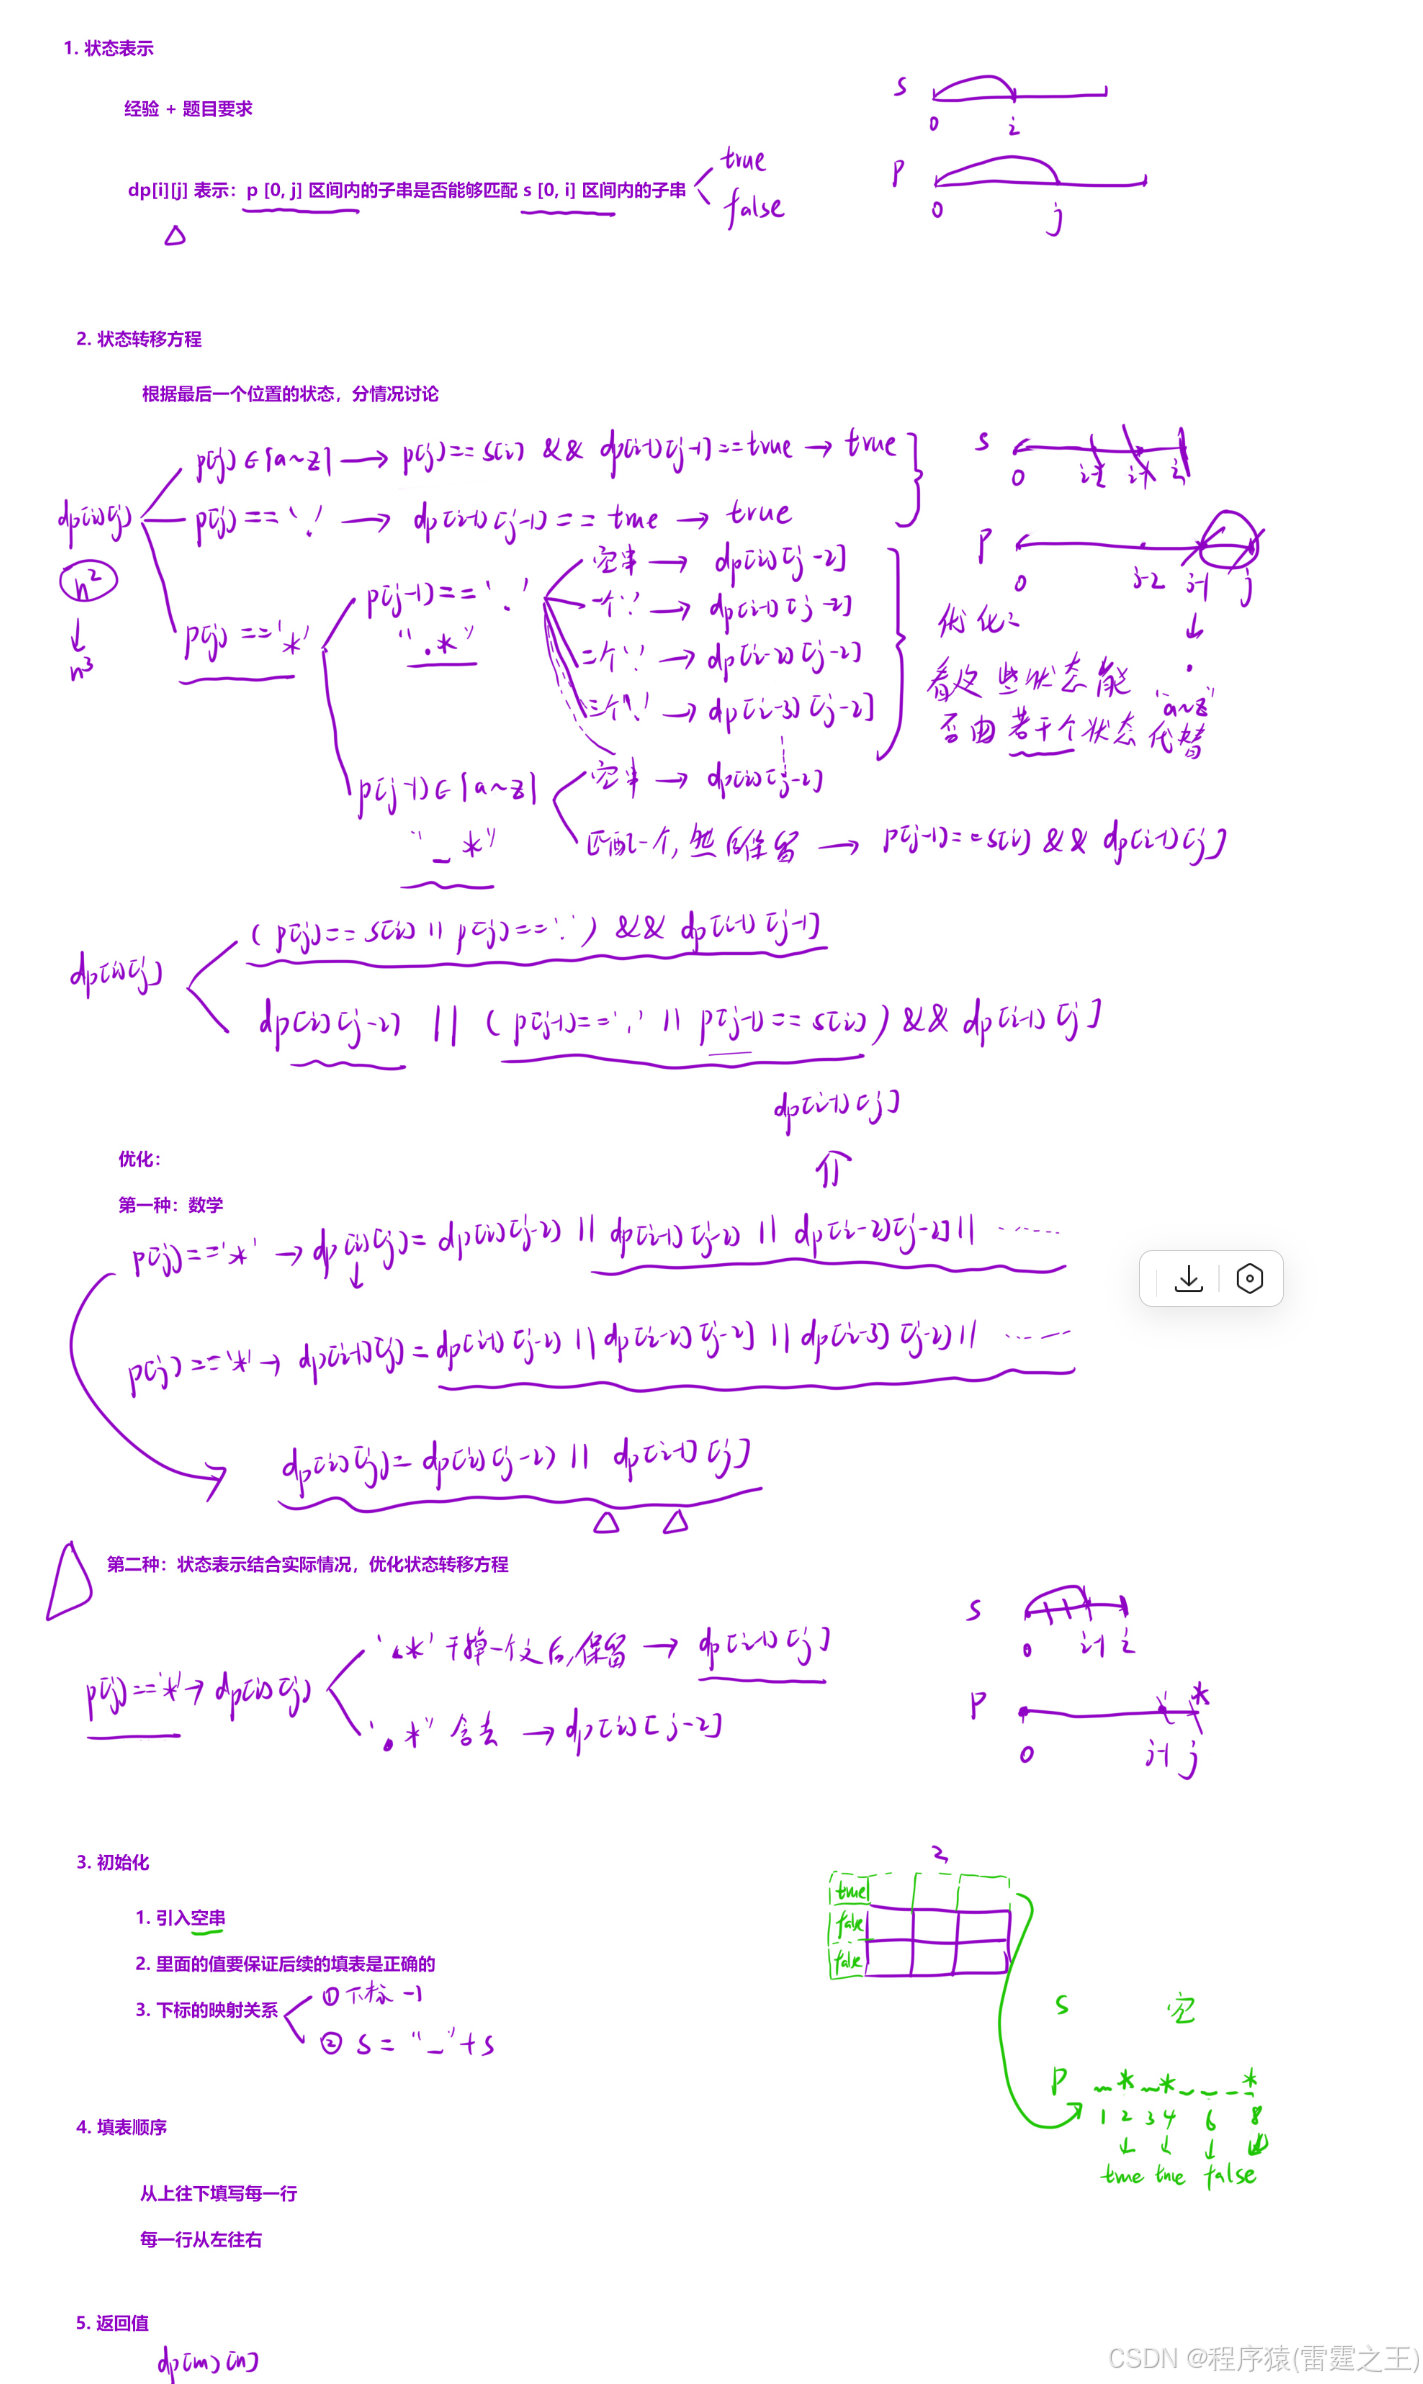 1. 状态表示
经验 + 题目要求
dp[i][j] 表示：p [0, j] 区间内的子串是否能够匹配 s [0, i] 区间内的子串
true
false
s
0 i
p
0 j
2. 状态转移方程
根据最后一个位置的状态，分情况讨论
dp[i][j]
n²
n³
p[j] ∈ [a~z] → p[j] == s[i] && dp[i-1][j-1] == true → true
p[j] == '.' → dp[i-1][j-1] == true → true
p[j] == '*'
p[j-1] == '.'
".*"
空串 → dp[i][j-2]
一个'.' → dp[i-1][j-2]
二个'.' → dp[i-2][j-2]
三个'.' → dp[i-3][j-2]
p[j-1] ∈ [a~z]
"_*"
空串 → dp[i][j-2]
匹配一个，然后保留 → p[j-1] == s[i] && dp[i-1][j]
s
0 i-2 i-1 i
p
0 j-2 j-1 j
.
"a~z"
优化：
看这些状态能
否由若干个状态代替
dp[i][j]
(p[j] == s[i] || p[j] == '.') && dp[i-1][j-1]
dp[i][j-2] || (p[j-1] == '.' || p[j-1] == s[i]) && dp[i-1][j]
dp[i-1][j]
优化：
第一种：数学
p[j] == '*' → dp[i][j] = dp[i][j-2] || dp[i-1][j-2] || dp[i-2][j-2] || ......
p[j] == '*' → dp[i-1][j] = dp[i-1][j-2] || dp[i-2][j-2] || dp[i-3][j-2] || ......
dp[i][j] = dp[i][j-2] || dp[i-1][j]
第二种：状态表示结合实际情况，优化状态转移方程
p[j] == '*' → dp[i][j]
'.*' 干掉一个之后，保留 → dp[i-1][j]
'.*' 舍去 → dp[i][j-2]
s
0 i-1 i
p *
0 j-1 j
3. 初始化
1. 引入空串
2. 里面的值要保证后续的填表是正确的
3. 下标的映射关系
① 下标 -1
② s = "_" + s
2
true
false
false
s 空
p _ * _ * _ _ _ *
1 2 3 4 6 8
true true false
4. 填表顺序
从上往下填写每一行
每一行从左往右
5. 返回值
dp[m][n]
CSDN @程序猿(雷霆之王)